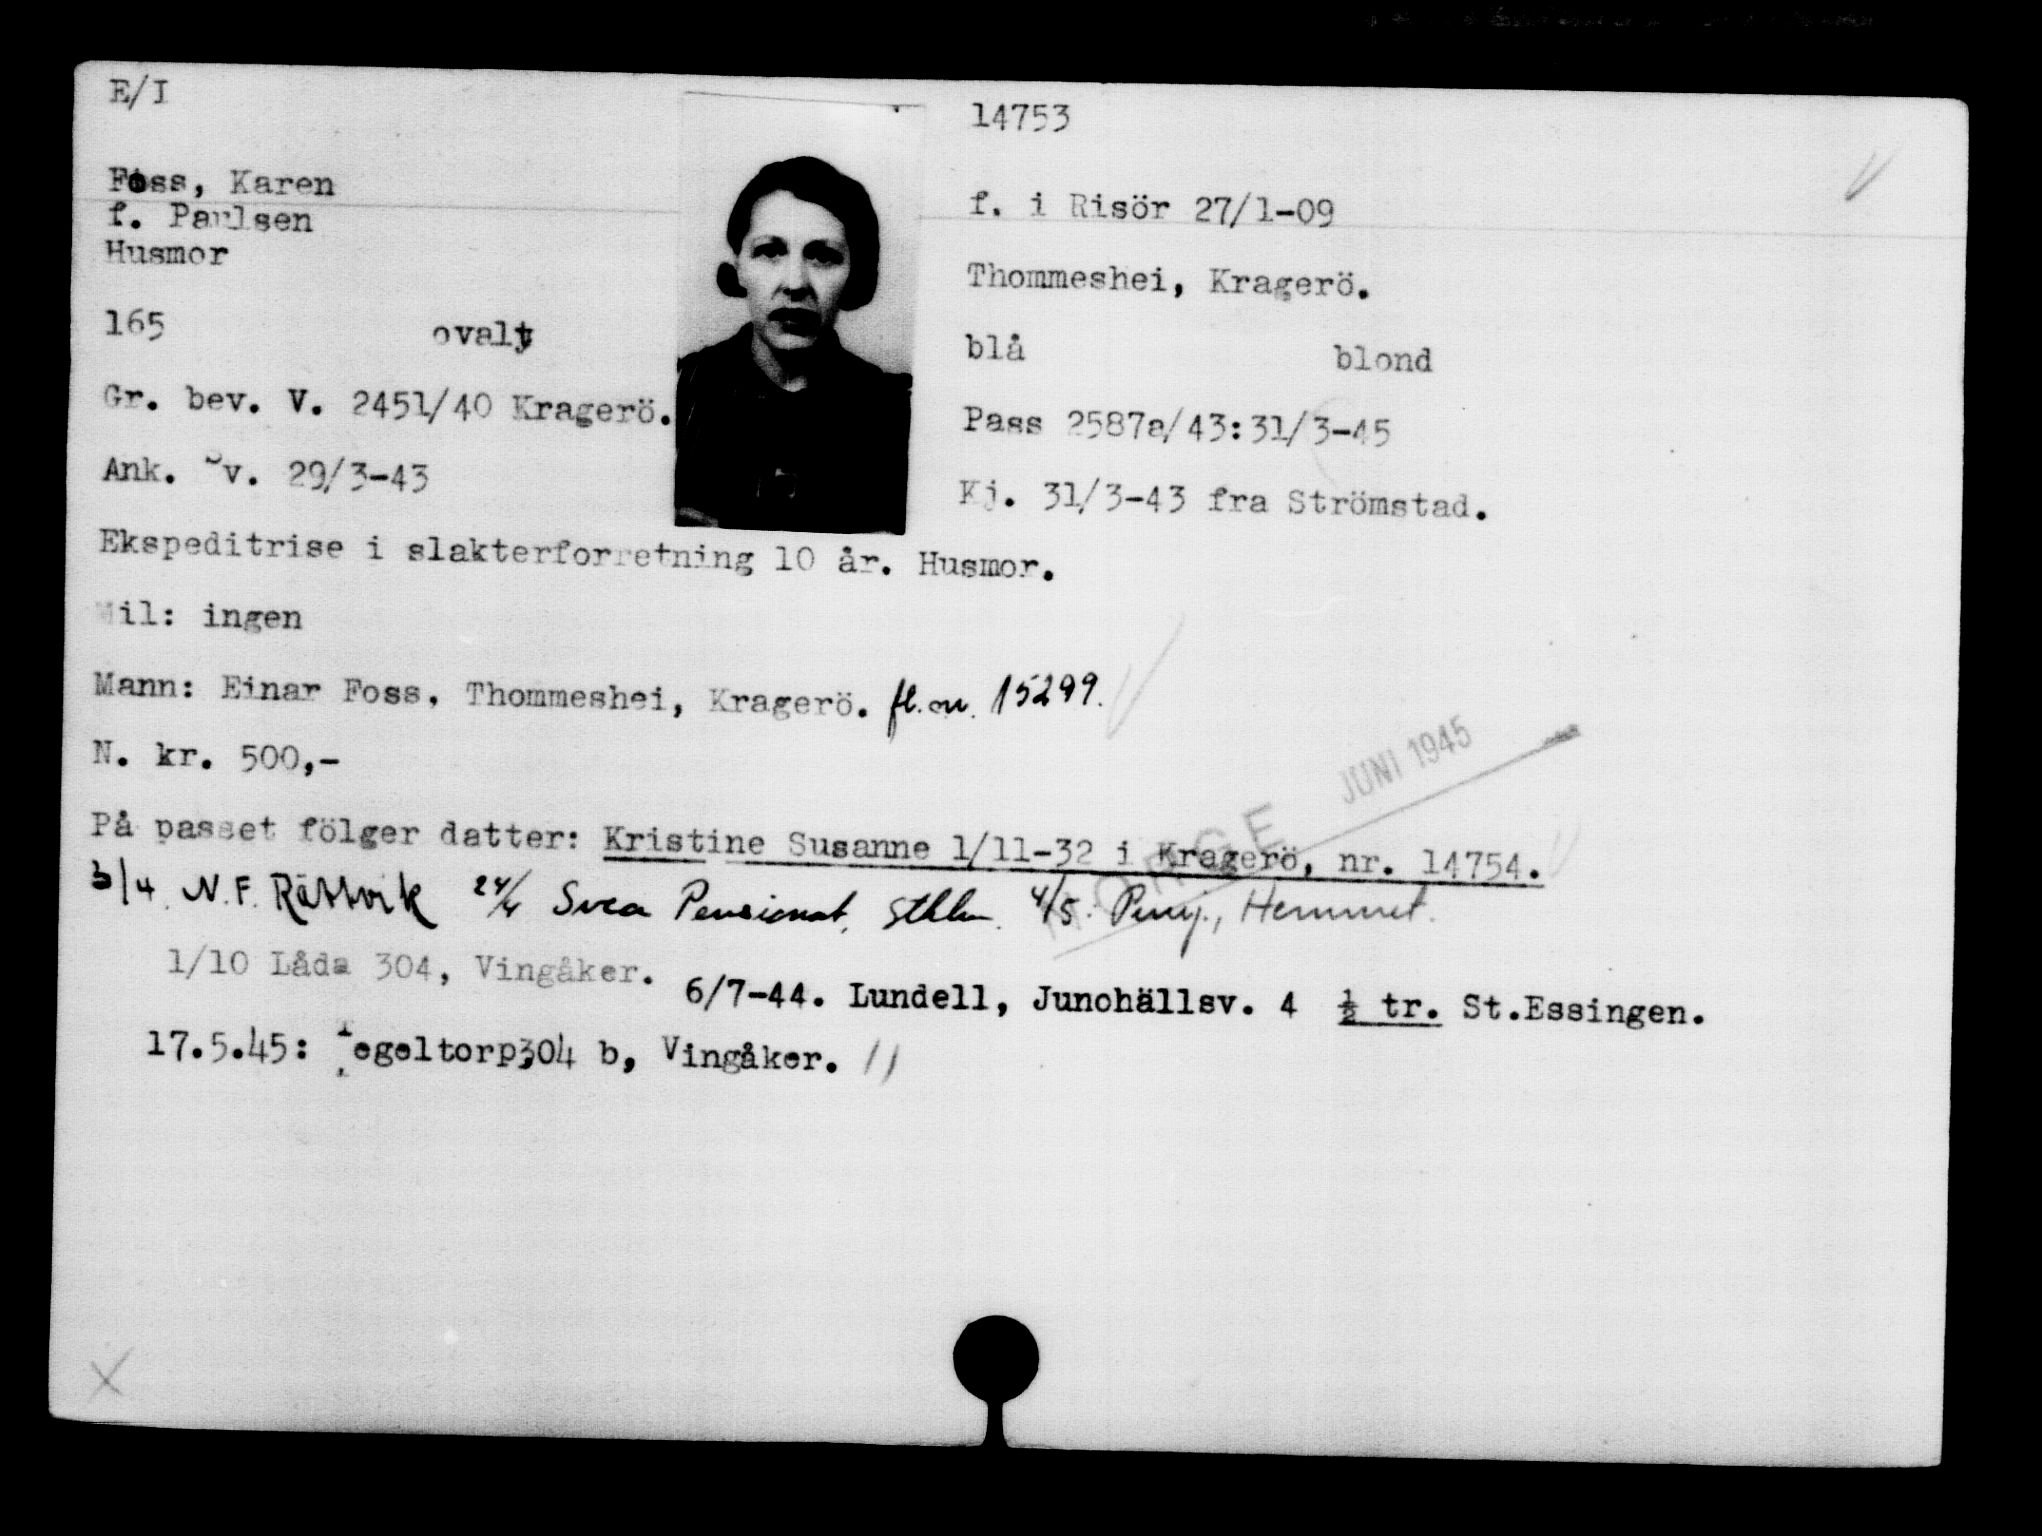 E/I
14753
Foss, Karen
f. Paulsen
f. i Risör 27/1-09
Husmor
Thommeshei, Kragerö.
165 ovalt
blå blond
Gr. bev. V. 2451/40 Kragerö.
Pass 2587a/43:31/3-45
Ank. Sv. 29/3-43
Kj. 31/3-43 fra Strömstad.
Ekspeditrise i slakterforretning 10 år. Husmor.
Mil: ingen
Mann: Einar Foss, Thommeshei, Kragerö. fl. nr. 15299.
N. kr. 500,-
JUNI 1945
NORGE
På passet fölger datter: Kristine Susanne 1/11-32 i Kragerö, nr. 14754.
3/4. N.F. Rättvik 24/4 Svea Pensionat, Sthlm. 4/5. Hemmet.
1/10 Låda 304, Vingåker.
6/7-44. Lundell, Junohällsv. 4 ½ tr. St.Essingen.
17.5.45: Tegeltorp,304 b, Vingåker.